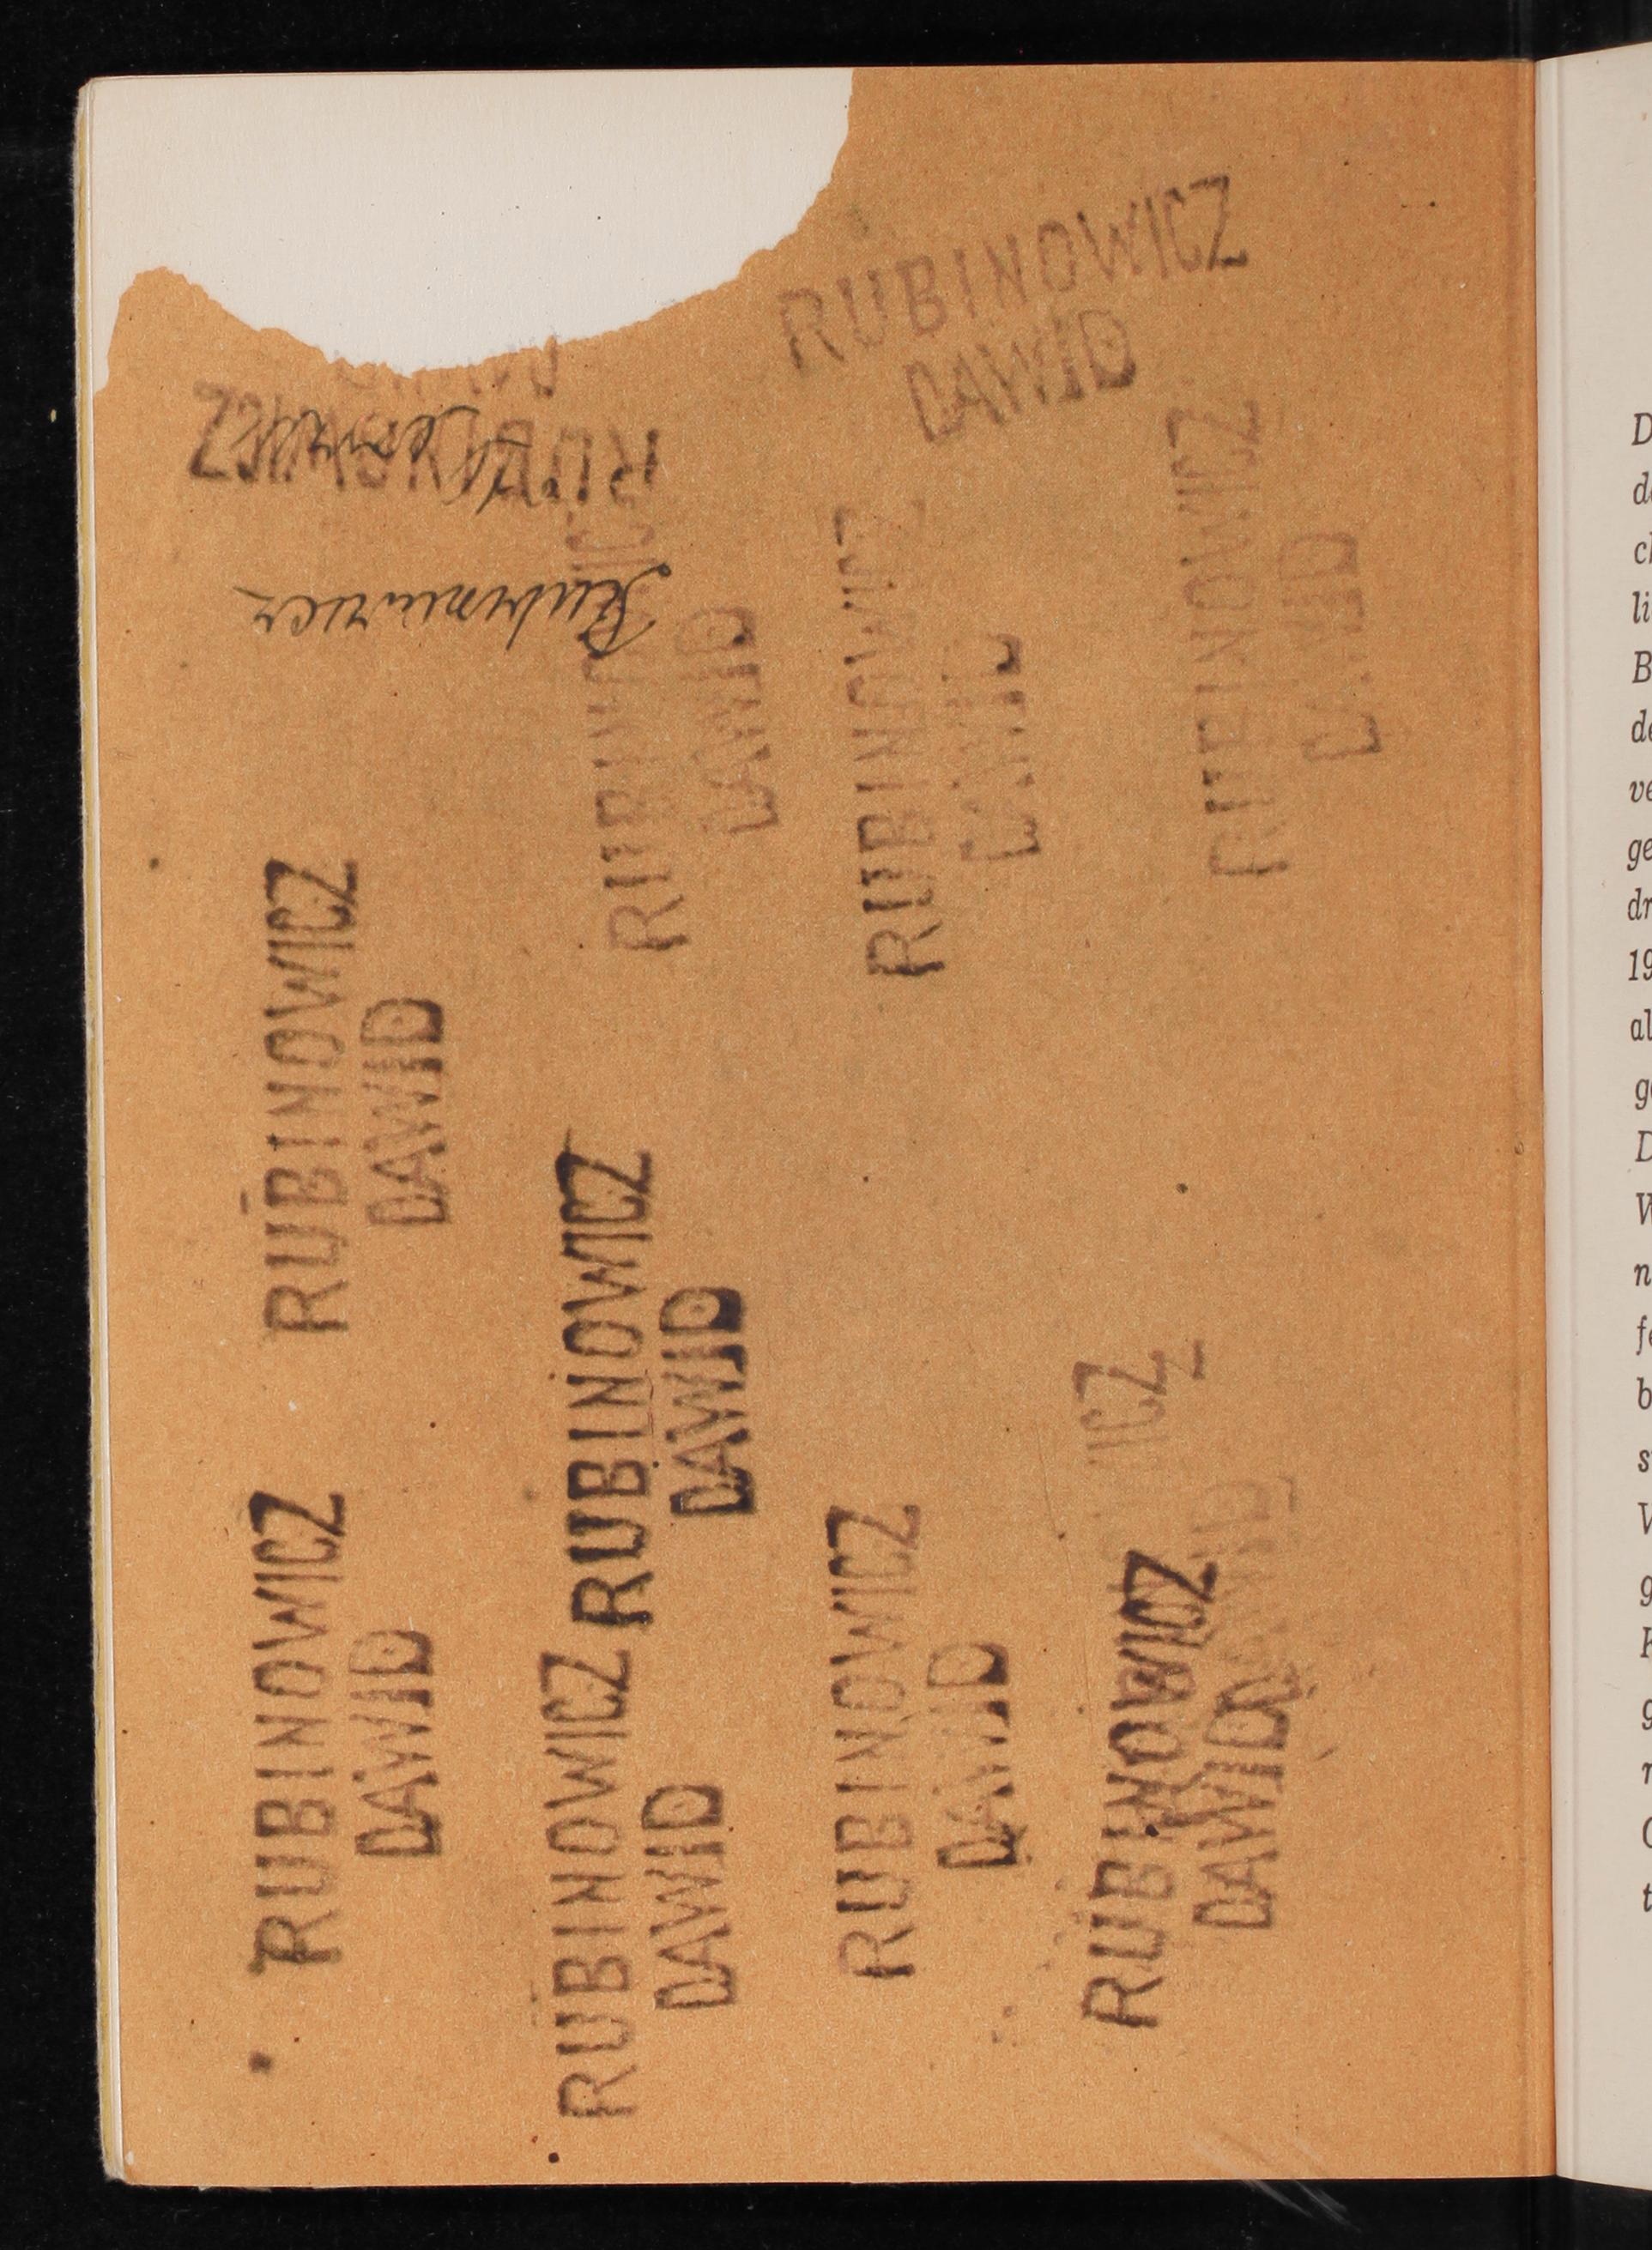 RUBINOWICZ
DAWID
RUBINOWICZ
Rubinowicz
RUBINOWICZ
DAWID
RUBINOWICZ
DAWID
RUBINOWICZ
DAWID
RUBINOWICZ
DAWID
RUBINOWICZ
DAWID
RUBINOWICZ
DAWID
RUBINOWICZ
DAWID
RUBINOWICZ
DAWID
ICZ
Z
RUBINOWICZ
DAWID